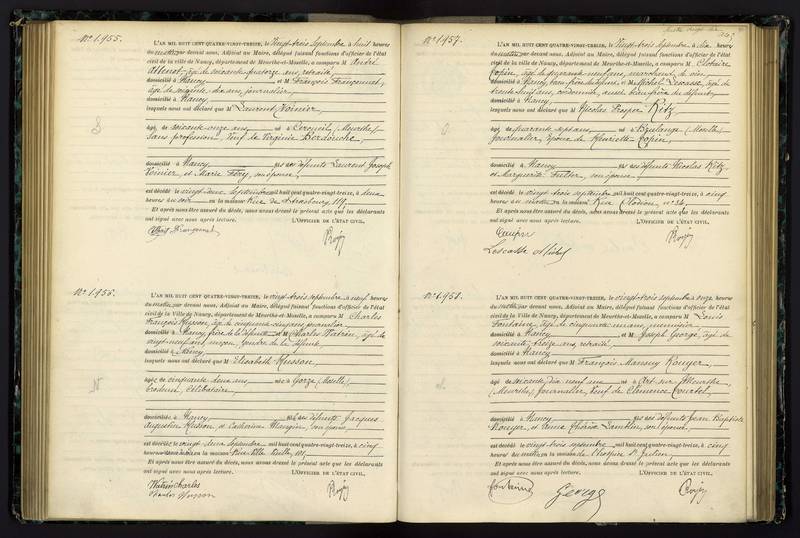 N° 1.955.
L'AN MIL HUIT CENT QUATRE-VINGT-TREIZE, le vingt-trois septembre, à huit heures
du matin, par devant nous, Adjoint au Maire, délégué faisant fonctions d'officier de l'état
civil de la Ville de Nancy, département de Meurthe-et-Moselle, a comparu M André
âgé de soixante-quatorze ans, retraité,
domicilié à Nancy et M François Françonnet,
âgé de soixante-dix ans, journalier,
domicilié à Nancy,
lesquels nous ont déclaré que M Laurent Voinier,
âgé de soixante-onze ans, né à Cercueil (Meurthe),
sans profession, veuf de Virginie
domicilié à Nancy, fils des défunts Laurent Joseph
Voinier, et Marie Féry, son épouse,
est décédé le vingt-deux septembre mil huit cent quatre-vingt-treize, à
heures du soir en la maison Rue de Strasbourg, 119,
Et après nous être assuré du décès, nous avons dressé le présent acte que les déclarants
ont signé avec nous après lecture. L'OFFICIER DE L'ÉTAT CIVIL,
N° 1.956.
L'AN MIL HUIT CENT QUATRE-VINGT-TREIZE, le vingt-trois septembre, à neuf heures
du matin, par devant nous, Adjoint au Maire, délégué faisant fonctions d'officier de l'état
civil de la Ville de Nancy, département de Meurthe-et-Moselle, a comparu M Charles
François Husson, âgé de cinquante-cinq ans, journalier,
domicilié à Nancy, frère de la défunte et M Charles Watrin, âgé de
vingt-neuf ans, maçon, gendre de la défunte,
domicilié à Nancy,
lesquels nous ont déclaré que M Elisabeth Husson,
âgée de cinquante-deux ans, née à Gorze (Moselle),
brodeuse, célibataire,
domicilié à Nancy, fille des défunts Jacques
Augustin Husson, et Catherine Mangin, son épouse,
est décédé le vingt-deux septembre mil huit cent quatre-vingt-treize, à cinq
heures en la maison Rue 101,
Et après nous être assuré du décès, nous avons dressé le présent acte que les déclarants
ont signé avec nous après lecture. L'OFFICIER DE L'ÉTAT CIVIL,
Watrin Charles
Charles Husson
N° 1.957.
L'AN MIL HUIT CENT QUATRE-VINGT-TREIZE, le vingt-trois septembre, à dix heures
du matin, par devant nous, Adjoint au Maire, délégué faisant fonctions d'officier de l'état
civil de la Ville de Nancy, département de Meurthe-et-Moselle, a comparu M Clotaire
Copin, âgé de quarante-neuf ans, marchand de vin,
domicilié à Nancy, beau-frère du défunt, et M Michel Lescasse, âgé de
trente-huit ans, cordonnier, aussi beau-frère du défunt,
domicilié à Nancy,
lesquels nous ont déclaré que M Nicolas Prosper Ritz,
âgé de quarante-sept ans, né à Boulange (Moselle),
journalier, époux de Henriette Copin,
domicilié à Nancy, fils des défunts Nicolas Ritz,
et Marguerite son épouse,
est décédé le vingt-trois septembre mil huit cent quatre-vingt-treize, à cinq
heures du matin en la maison Rue Clodion, n° 34,
Et après nous être assuré du décès, nous avons dressé le présent acte que les déclarants
ont signé avec nous après lecture. L'OFFICIER DE L'ÉTAT CIVIL,
Lescasse Michel
N° 1.958.
L'AN MIL HUIT CENT QUATRE-VINGT-TREIZE, le vingt-trois septembre à onze heures
du matin, par devant nous, Adjoint au Maire, délégué faisant fonctions d'officier de l'état
civil de la Ville de Nancy, département de Meurthe-et-Moselle, a comparu M Louis
Fontaine, âgé de cinquante-un ans, menuisier,
domicilié à Nancy et M Joseph George, âgé de
soixante-treize ans, retraité,
domicilié à Nancy
lesquels nous ont déclaré que M François Mansuy Rouyer,
âgé de soixante-dix-neuf ans né à Art-sur-Meurthe,
(Meurthe), journalier, veuf de Clémence Courtel,
domicilié à Nancy, fils des défunts Jean Baptiste
Rouyer, et Anne Thérèse son épouse,
est décédé le vingt-trois septembre mil huit cent quatre-vingt-treize, à cinq
heures du matin en la maison de l'hospice St Julien,
Et après nous être assuré du décès, nous avons dressé le présent acte que les déclarants
ont signé avec nous après lecture. L'OFFICIER DE L'ÉTAT CIVIL,
Fontaine
George